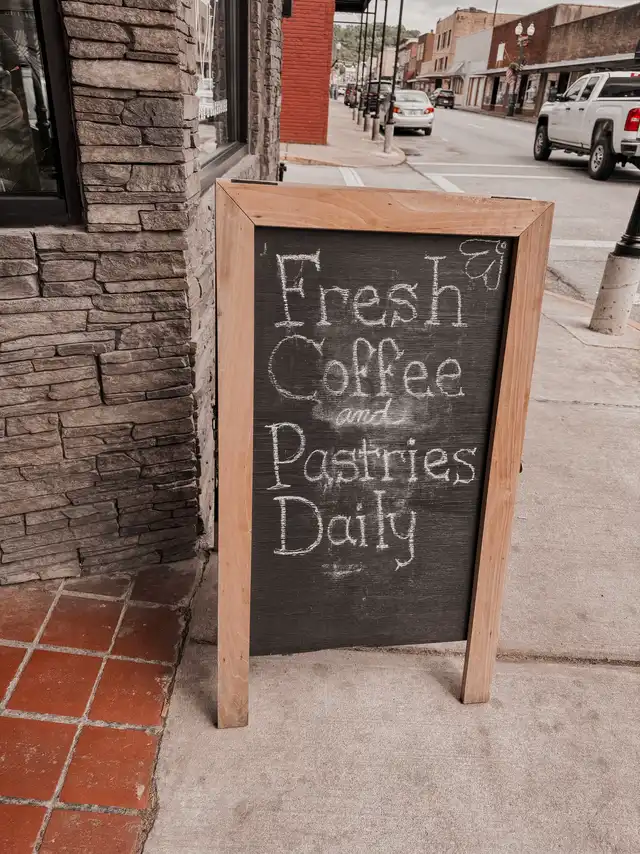 Fresh
Coffee
and
Pastries
Daily